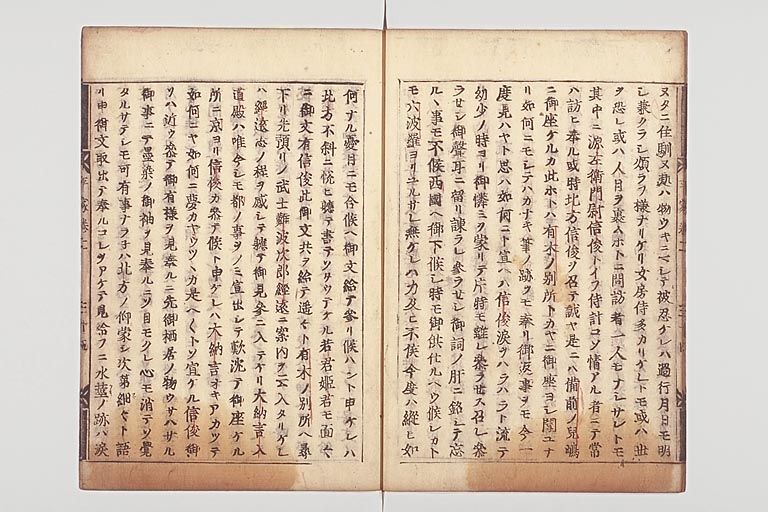 ヌタニ住馴ヌ熱ハ物ウキニベレテ被忍ケレハ過行月日モ明
シ兼クラシ煩ラフ様ナリケリ女房侍多カリケレトモ或ハ世
ヲ恐レ或ハ人目ヲ裹ムホトニ問訪者一人モナシサレトモ
其中ニ源左衛門尉信俊トイフ侍計コソ情アル者ニテ常
ハ訪ヒ奉ル或時北方信俊ヲ召テ誠ヤ是ニハ備前ノ児嶋
ニ御座ケルカ此ホトハ有木ノ別所トカヤニ御座ヨシ聞ユナ
リ如何ニモシテハカナキ筆ノ跡ヲモ奉リ御返事ヲモ今一
度見ハヤト思ハ如何ニト宣ヘハ信俊涙ヲハラハラト流テ
幼少ノ時ヨリ御憐ミヲ蒙リテ片時モ離レ奉ラ世ス召レ参
ラせシ御聲モ耳ニ留リ諌ラレ参ラせシ御詞ノ肝ニ銘シテ忘
ルヽ事モ不候西國ヘ御下候シ時モ御供仕ルヘウ候シカト
モ六波羅ヨリユルサレ無ケレハ力及ヒ不候今度ハ縦ヒ如
何ナル憂目ニモ合候ヘ御文給テ参リ候ハント申ケレハ
北方不斜ニ悦ヒ軈テ書テソタウテケル若君姫君モ面々
ニ御文有信俊此御文共ヲ給テ遥々ト有木ノ別所ヘ尋
下リ先預リノ武士難波次郎經遠ニ案内ヲ云入タリケレ
ハ經遠志ノ程ヲ感シテ軈テ御見参ニ入テケリ大納言入
道殿ハ唯今シモ都ノ事ヲノミ宣出シテ歎沈テ御座ケル
所ニ京ヨリ信俊カ参テ候ト申ケレハ大納言オキアカツテ
如何ニヤ如何ニ夢カヤウツヽカ是ヘくトソ宣ケル信俊御
ソハ近ウ参テ御有様ヲ見奉ルニ先御栖居ノ物ウサハサル
御事ニテ墨染ノ御袖ヲ見奉ルニソ目モクレ心モ消テソ覺
タルサテシモ可有事ナラネハ北方ノ仰蒙シ次第細々ト語
リ申御文取出テ奉ルコレヲアケテ見給フニ水莖ノ跡ハ涙